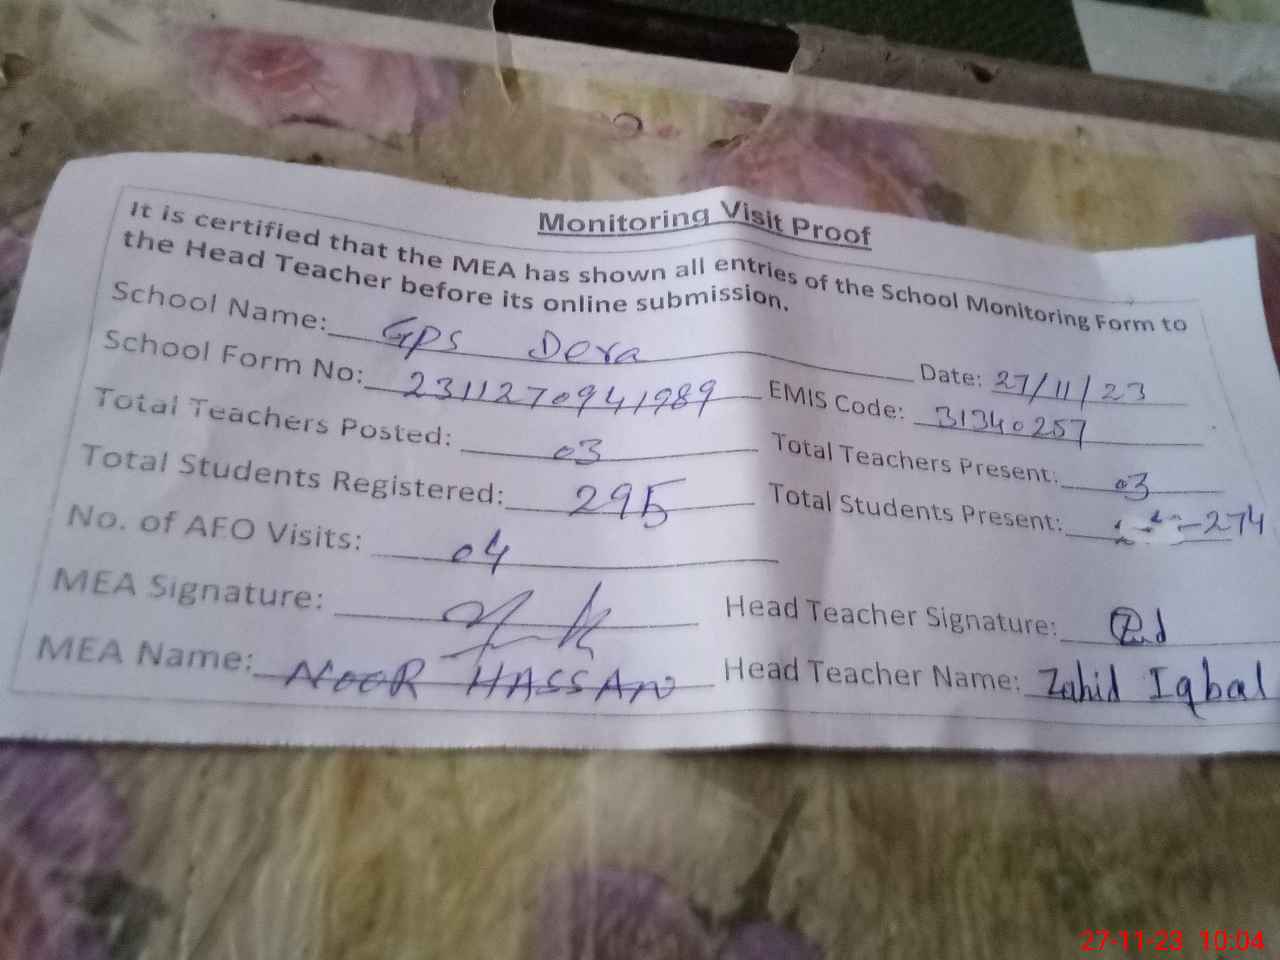 Monitoring Visit Proof
It is certified that the MEA has shown all entries of the School Monitoring Form to
the Head Teacher before its online submission.
School Name: GPS Dera Date: 27/11/23
School Form No: 2311270941989 EMIS Code: 31340257
Total Teachers Posted: 03 Total Teachers Present: 03
Total Students Registered: 295 Total Students Present: 274
No. of AFO Visits: 04
MEA Signature: Head Teacher Signature:
MEA Name: NOOR HASSAN Head Teacher Name: Zahid Iqbal
27-11-23 10:04